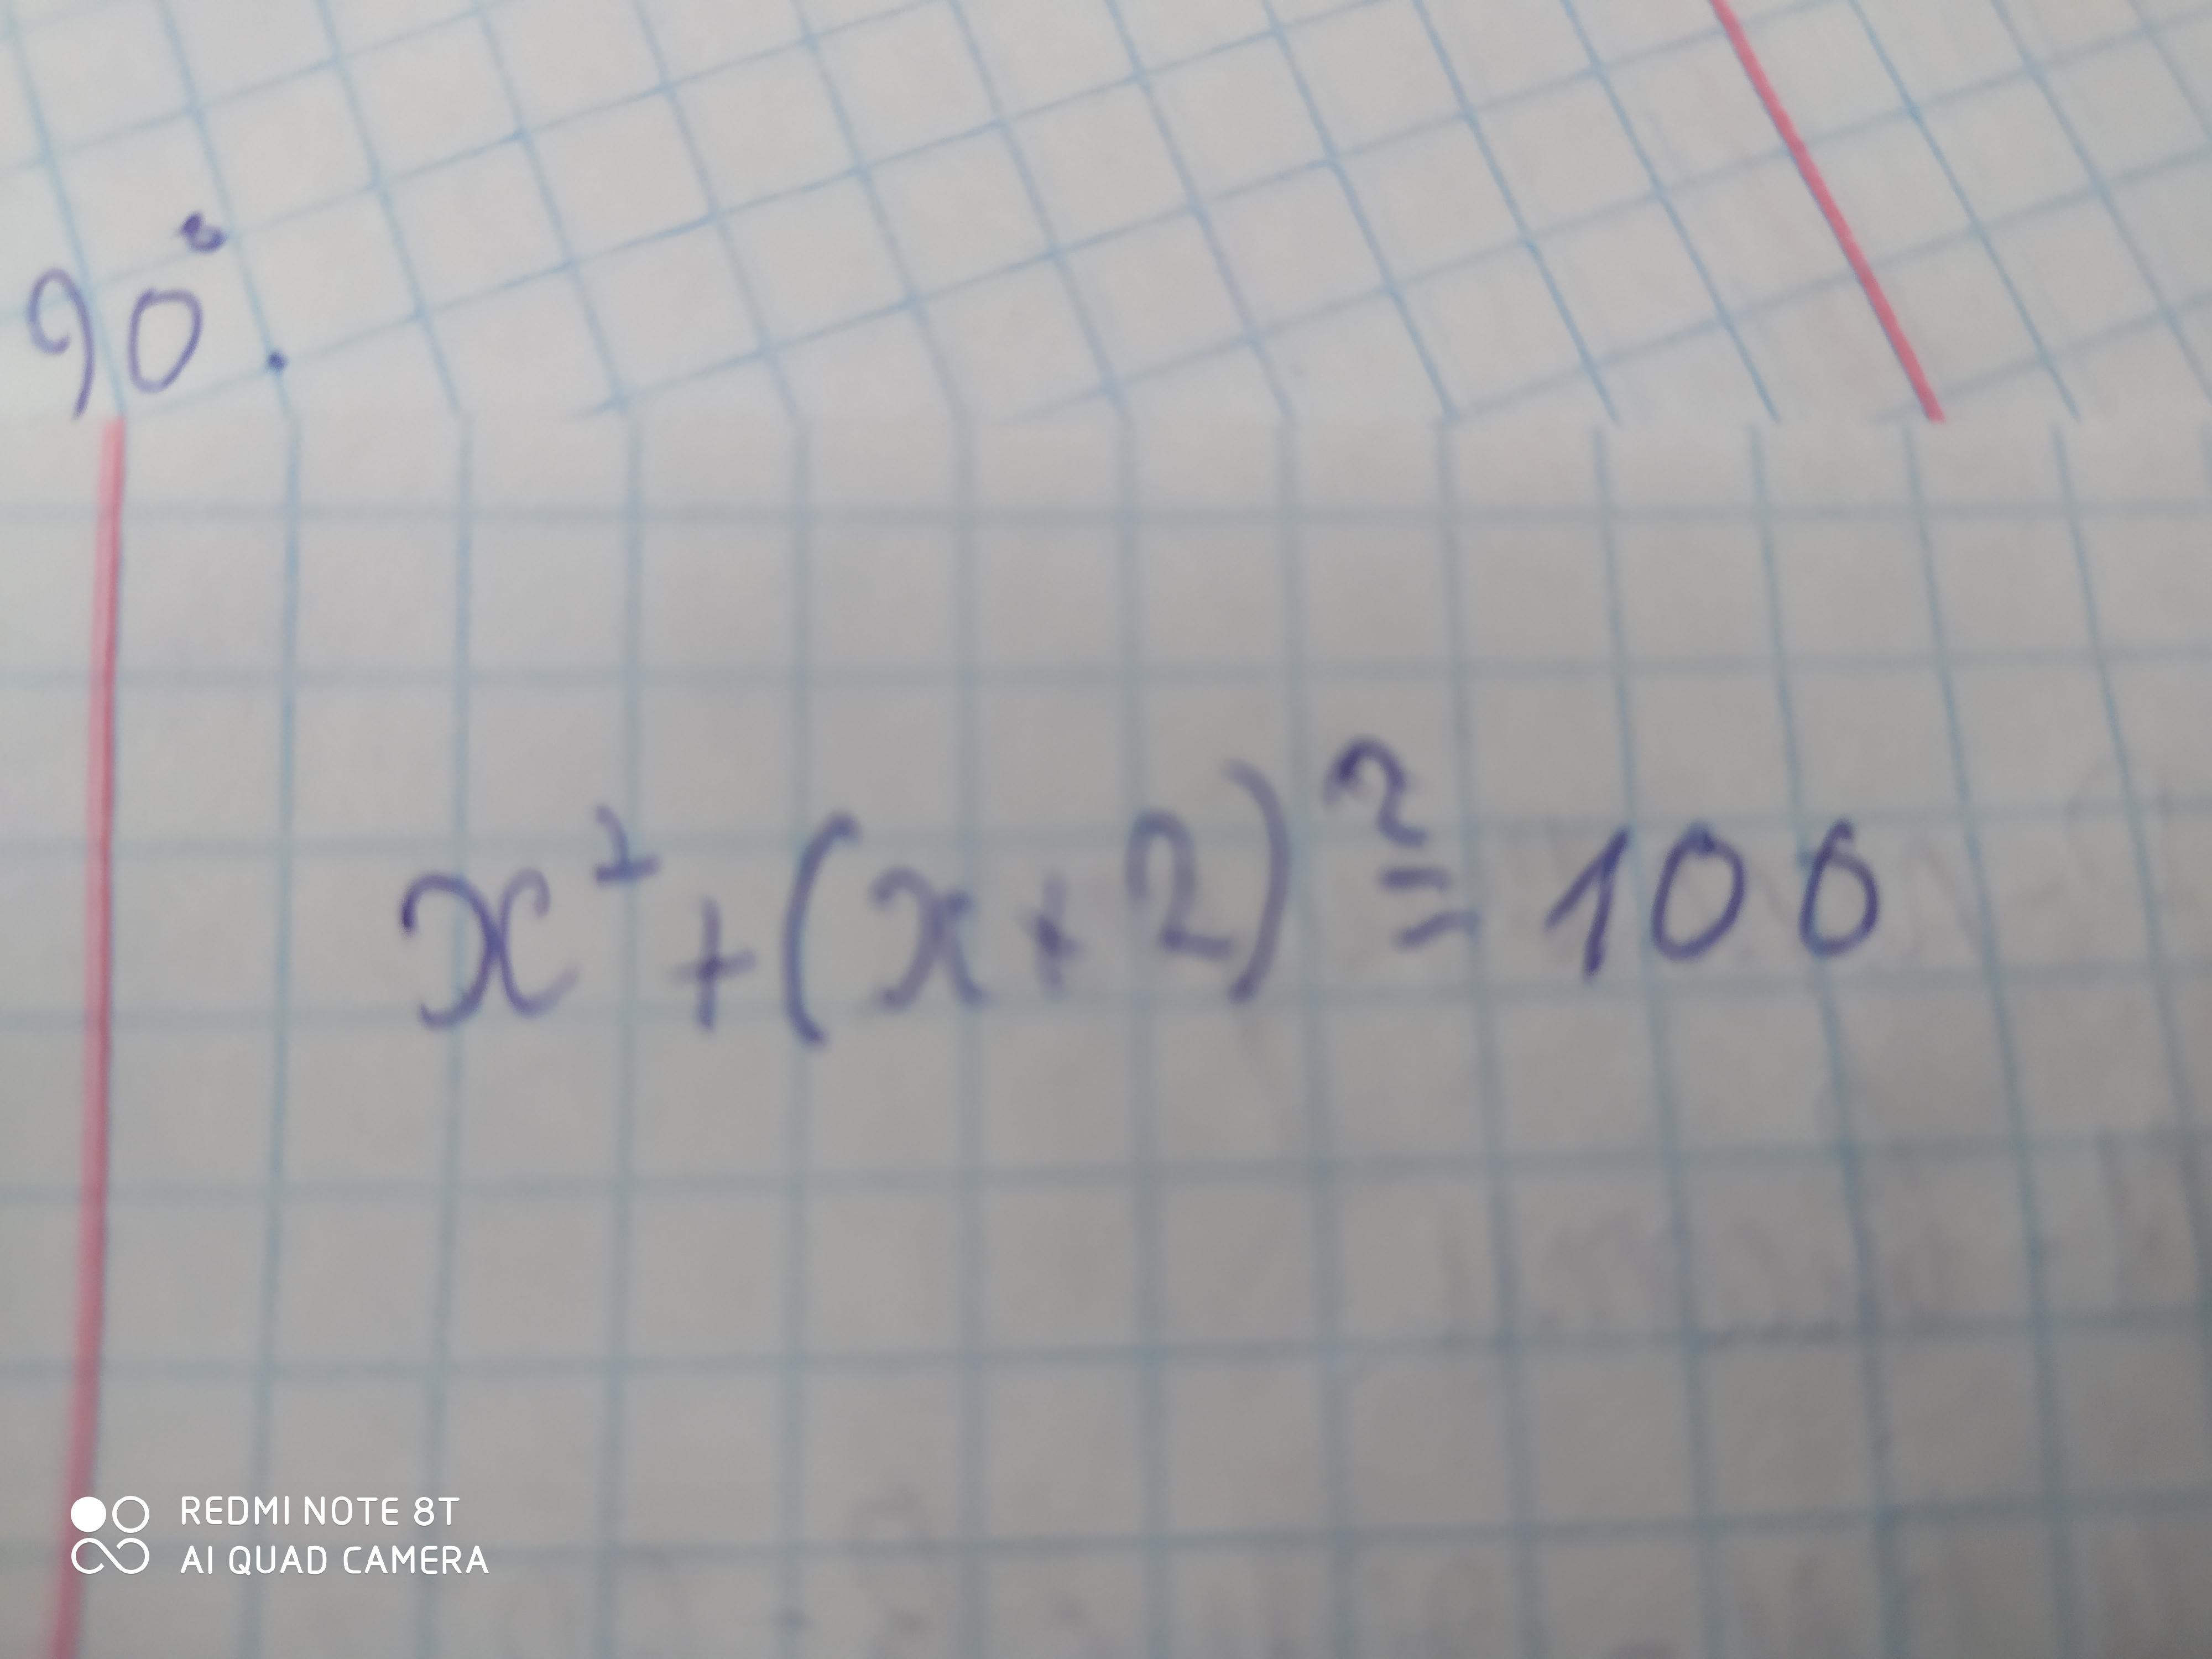 90°.
x² + (x + 2)² = 100
REDMI NOTE 8T
AI QUAD CAMERA